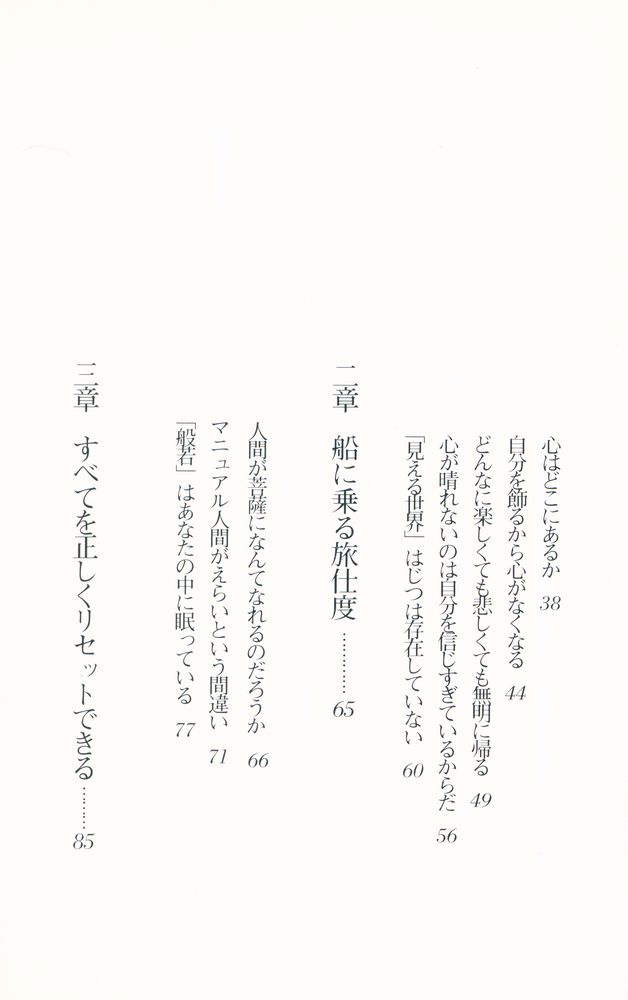 心はどこにあるか 38
自分を飾るから心がなくなる 44
どんなに楽しくても悲しくても無明に帰る 49
心が晴れないのは自分を信じすぎているからだ 56
「見える世界」はじつは存在していない 60
二章 船に乗る旅仕度…………65
人間が菩薩になんてなれるのだろうか 66
マニュアル人間がえらいという間違い 71
「般若」はあなたの中に眠っている 77
三章 すべてを正しくリセットできる………85